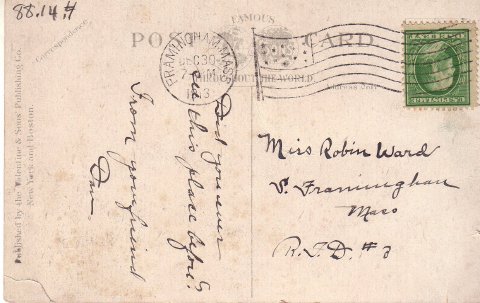 88.14.H
FAMOUS
POST CARD
AROUND THE WORLD.
Correspondence.
Address Only
FRAMINGHAM, MASS.
DEC 30
U.S. POSTAGE
Published by the Valentine & Sons' Publishing Co.
New York and Boston.
Did you ever
see this place before?
From your friend
Dan
Miss Robin Ward
S. Framingham
Mass
R.F.D. #3